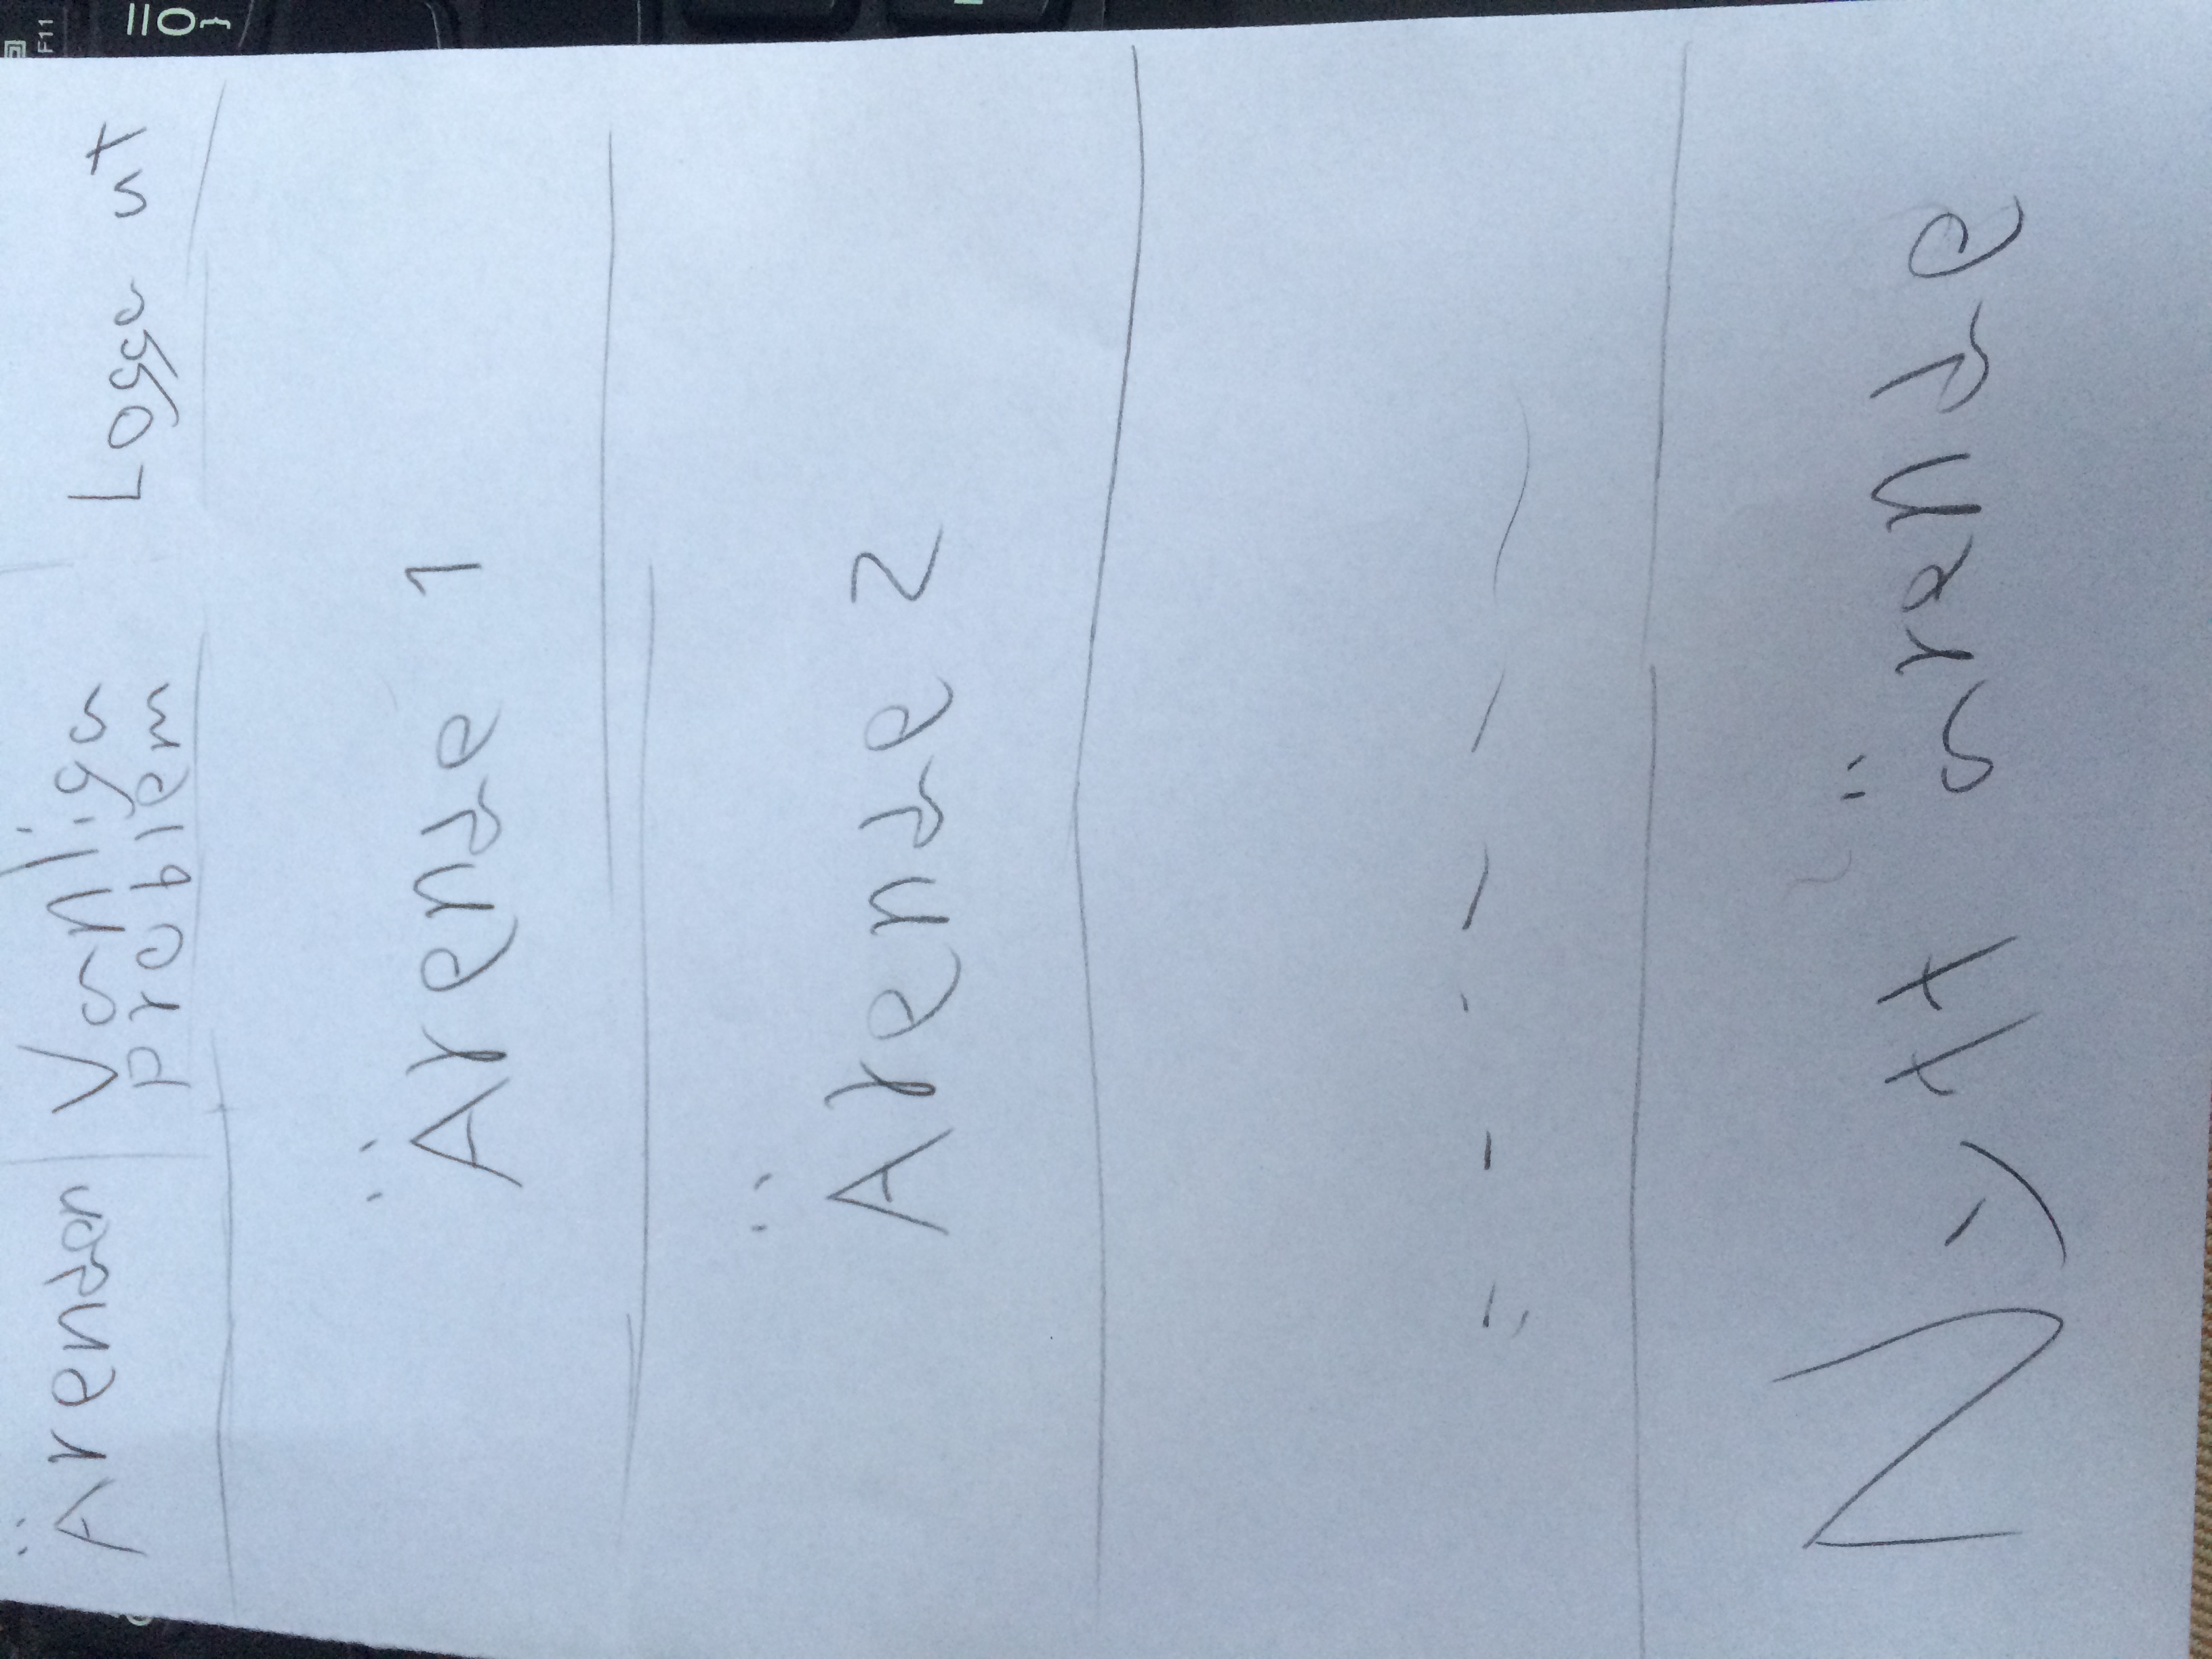 Ärenden
Vanliga
Problem
Logga ut
Ärende 1
Ärende 2
Nytt ärende
F11
=
0
}